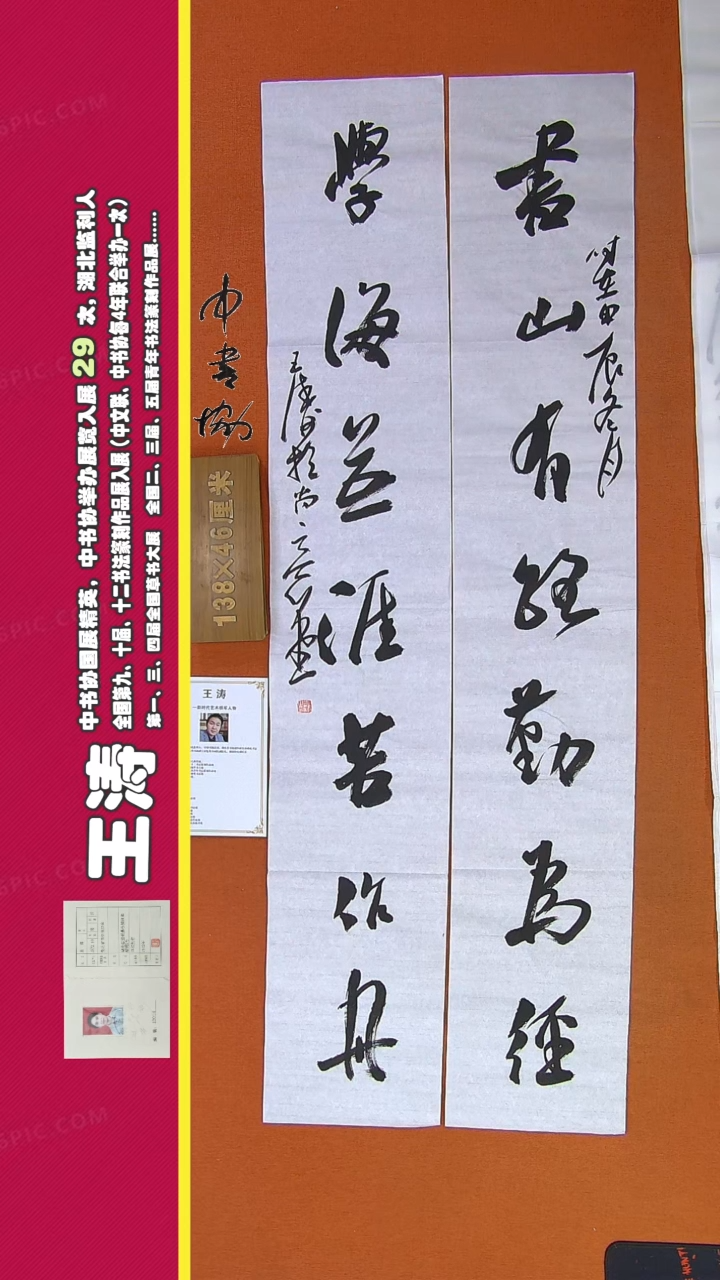 書山有路勤為徑
時在甲辰冬月
學海無涯苦作舟
王涛
中書協
138×46厘米
王涛
中书协国展精英，中书协举办展览入展 29 次，湖北监利人
全国第九、十届、十二书法篆刻作品展入展（中文联、中书协每4年联合举办一次）
第一、三、四届全国草书大展 全国二、三届、五届青年书法篆刻作品展......
王 涛